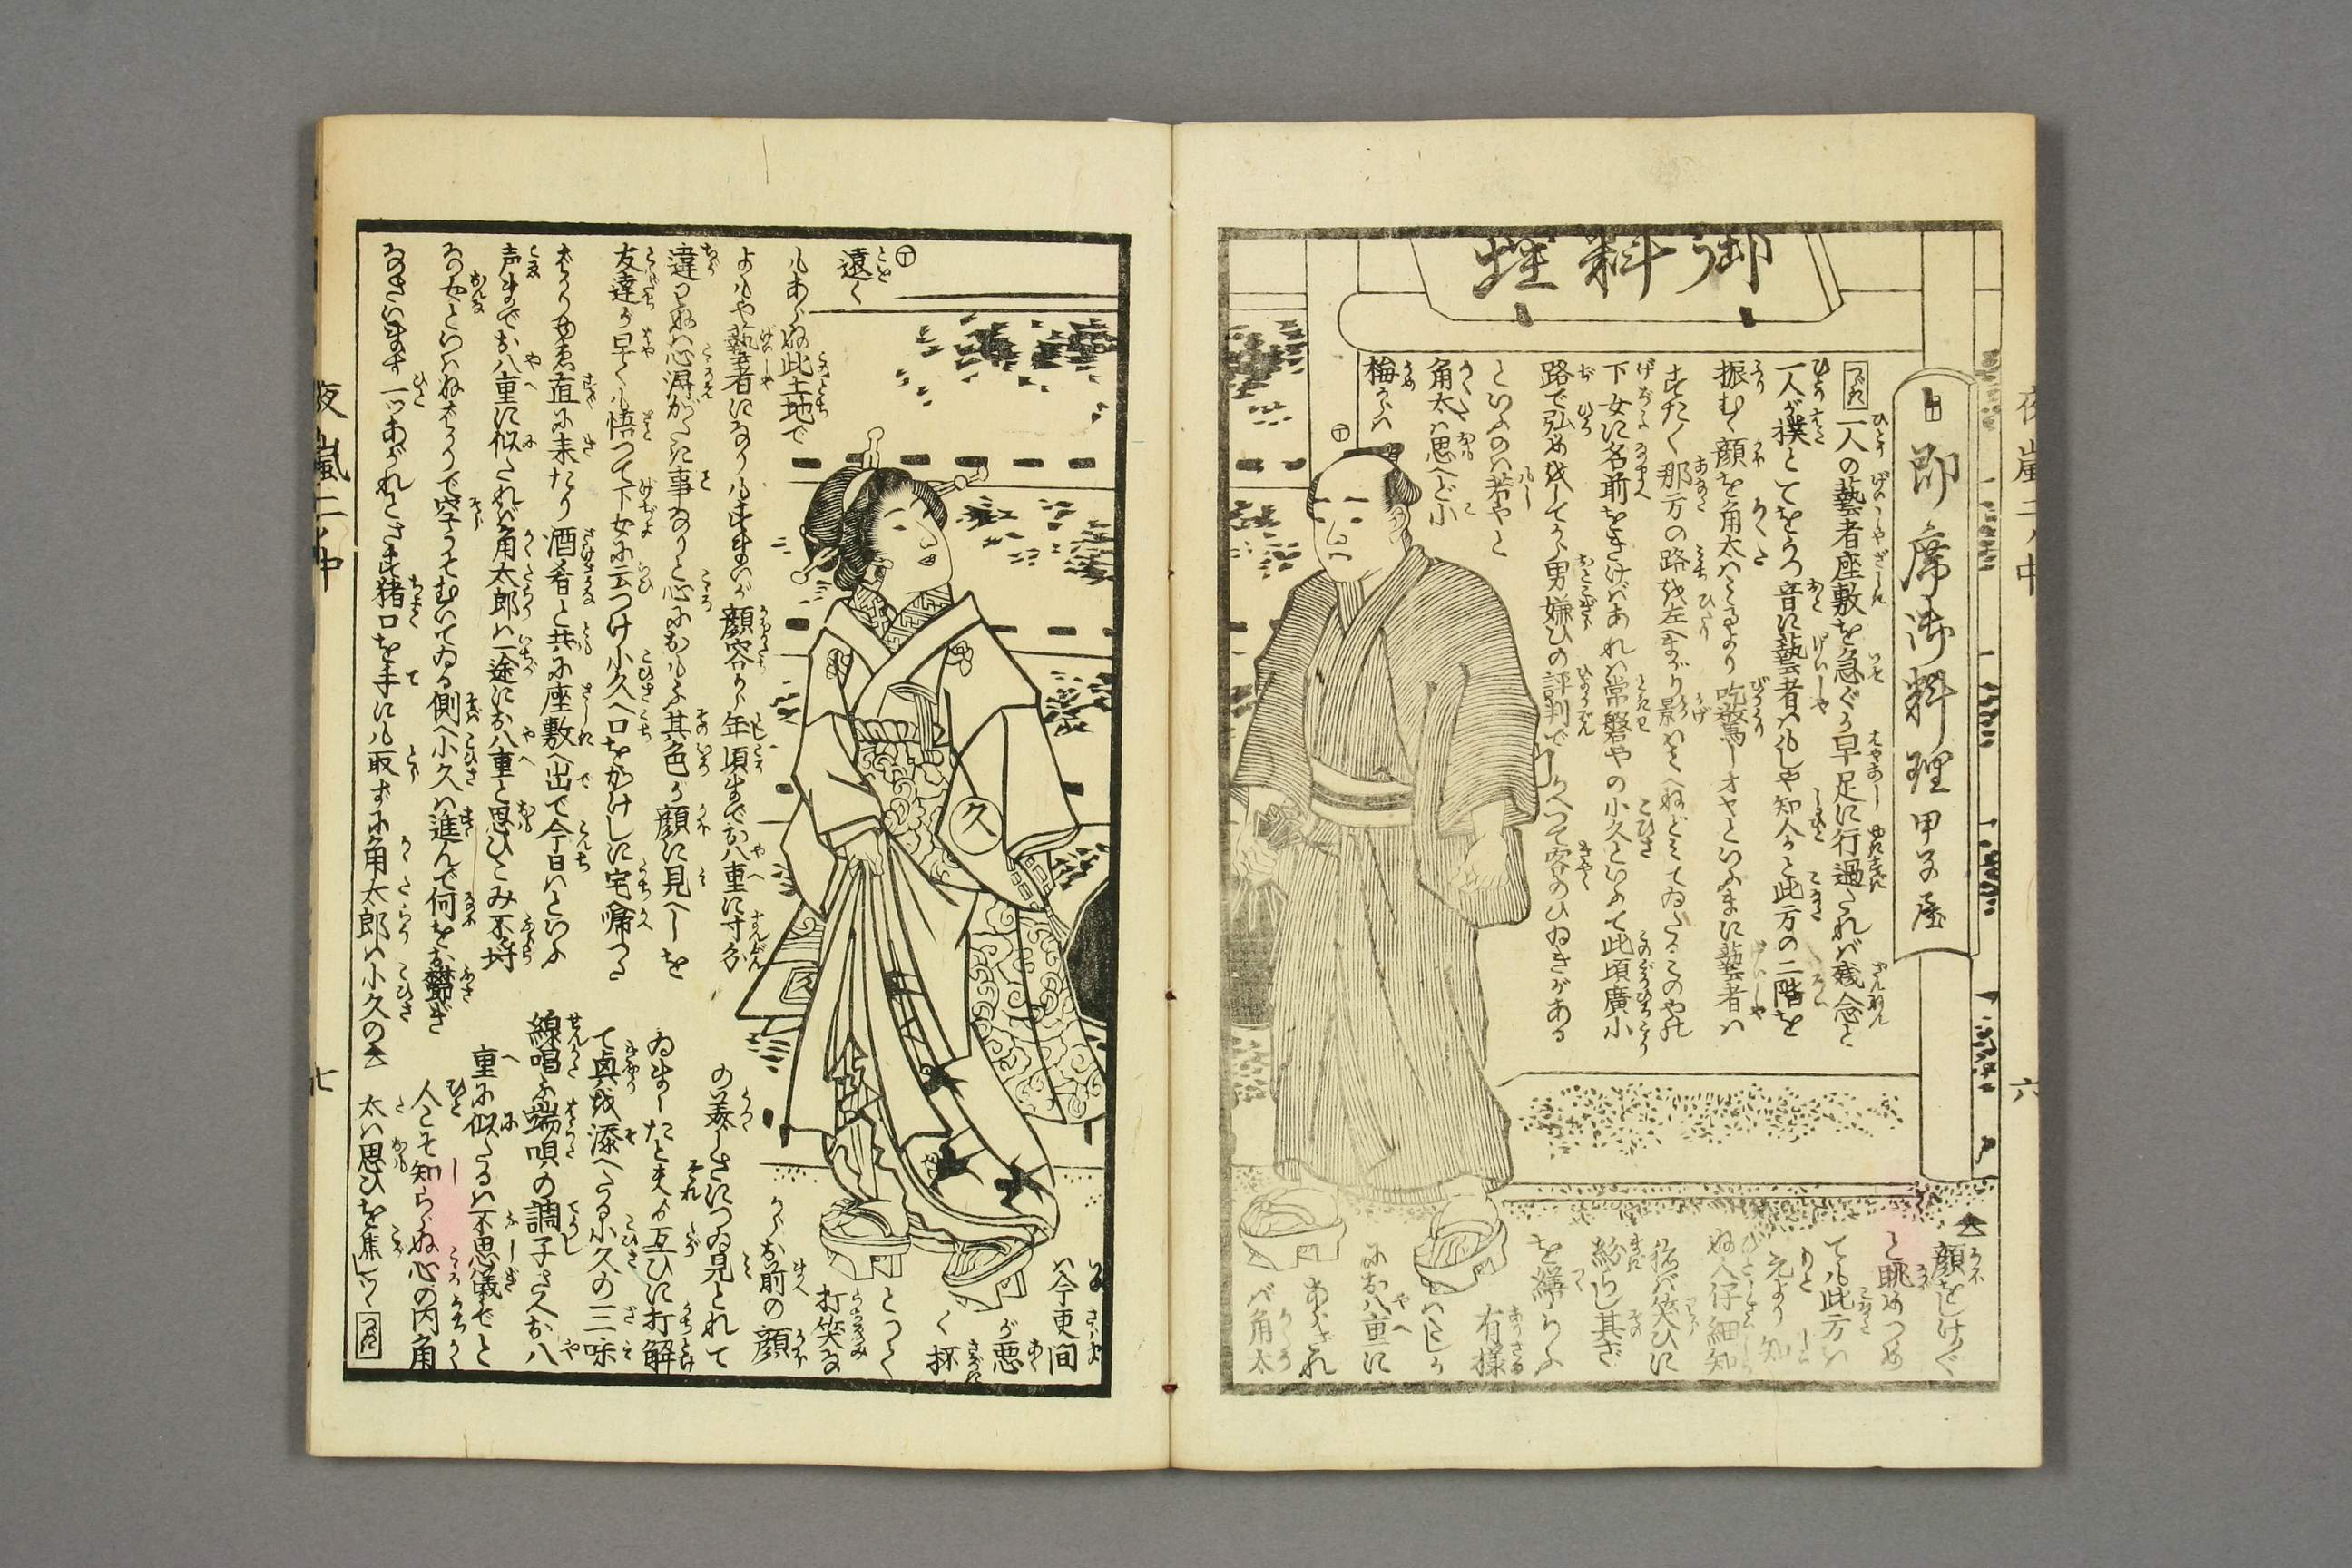 御料理
即席御料理 甲子屋
つゞき
一人の藝者座敷を急ぐか早足に行過たれバ残念と
一人が撲とてをうつ音に藝者ハもしや知人かと此方の二階を
振むく顔を角太ハみるより吃驚しオヤといふまに藝者ハ
すたく那方の路を左へまがり影ハみへねどみてゐたるこのやの
下女に名前をきけバあれハ常磐やの小久といふて此頃廣小
路で弘めをしてから男嫌ひの評判でかへつて客のひゐきがある
といふのハ若やと
角太ハ思へど小
梅からハ
顔をしけ〴〵
と眺めつめ
ても此方ハ
元より知
ぬ人仔細知
ねバ笑ひに
紛らし其ぎ
を繕らふ
有様
ハヒしか
にお八重に
あらざれ
バ角太
夜嵐二ノ中
六
遠く
もあらぬ此土地で
よもや藝者になりもすまいが顔容から年頃までお八重に寸分
違ワぬハ心得がたき事なりと心におもふ其色か顔に見へしを
友達が早くも悟つて下女に云つけ小久へ口をかけしに宅へ帰つた
ばかり直に来たり酒肴と共に座敷へ出で今日ハといふ
声までお八重に似たれバ角太郎ハ一途にお八重と思ひこみ不埒
な女といハねばかりで空うそむいてゐる側へ小久ハ進んで何をお鬱ぎ
なさいます一ツあがれとさす猪口を手にも取ずに角太郎ハ小久の
ハ今更間
が悪
く杯
とつて
打笑な
からお前の顔
の美しさについ見とれて
ゐましたと夫から互ひに打解
て興を添へたる小久の三味
線唱ふ端唄の調子さへお八
重に似たるハ不思儀でと
人こそ知らぬ心の内角
太ハ思ひを焦しつゝ
つゞき
久
夜嵐二ノ中
七